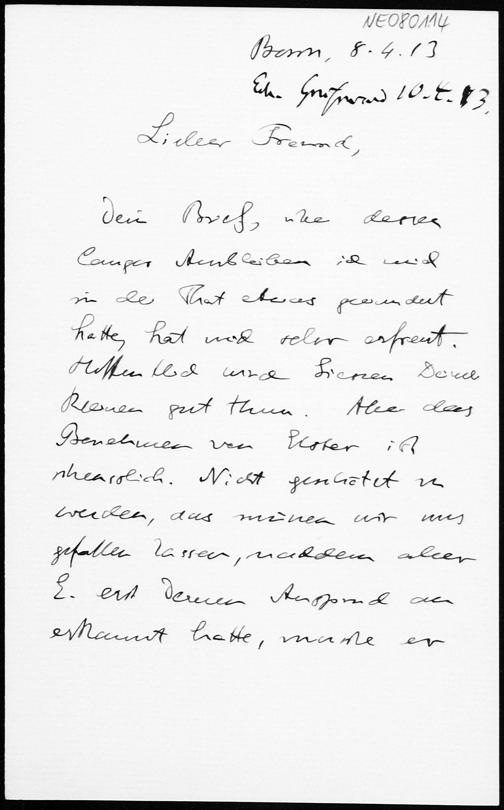 NE080114
Bonn, 8.4.13
Greifswald 10.4.13.
Lieber Freund,
Dein Brief, über dessen
langes Ausbleiben ich mich
in der That etwas gewundert
hatte, hat mich sehr erfreut.
Hoffentlich wird Siessen Deiner
Kleinen gut thun. Aber das
Benehmen von Elster ist
scheusslich. Nicht geschätzt zu
werden, das müssen wir uns
gefallen lassen, nachdem aber
E. erst Deinen Anspruch an
erkannt hatte, musste er